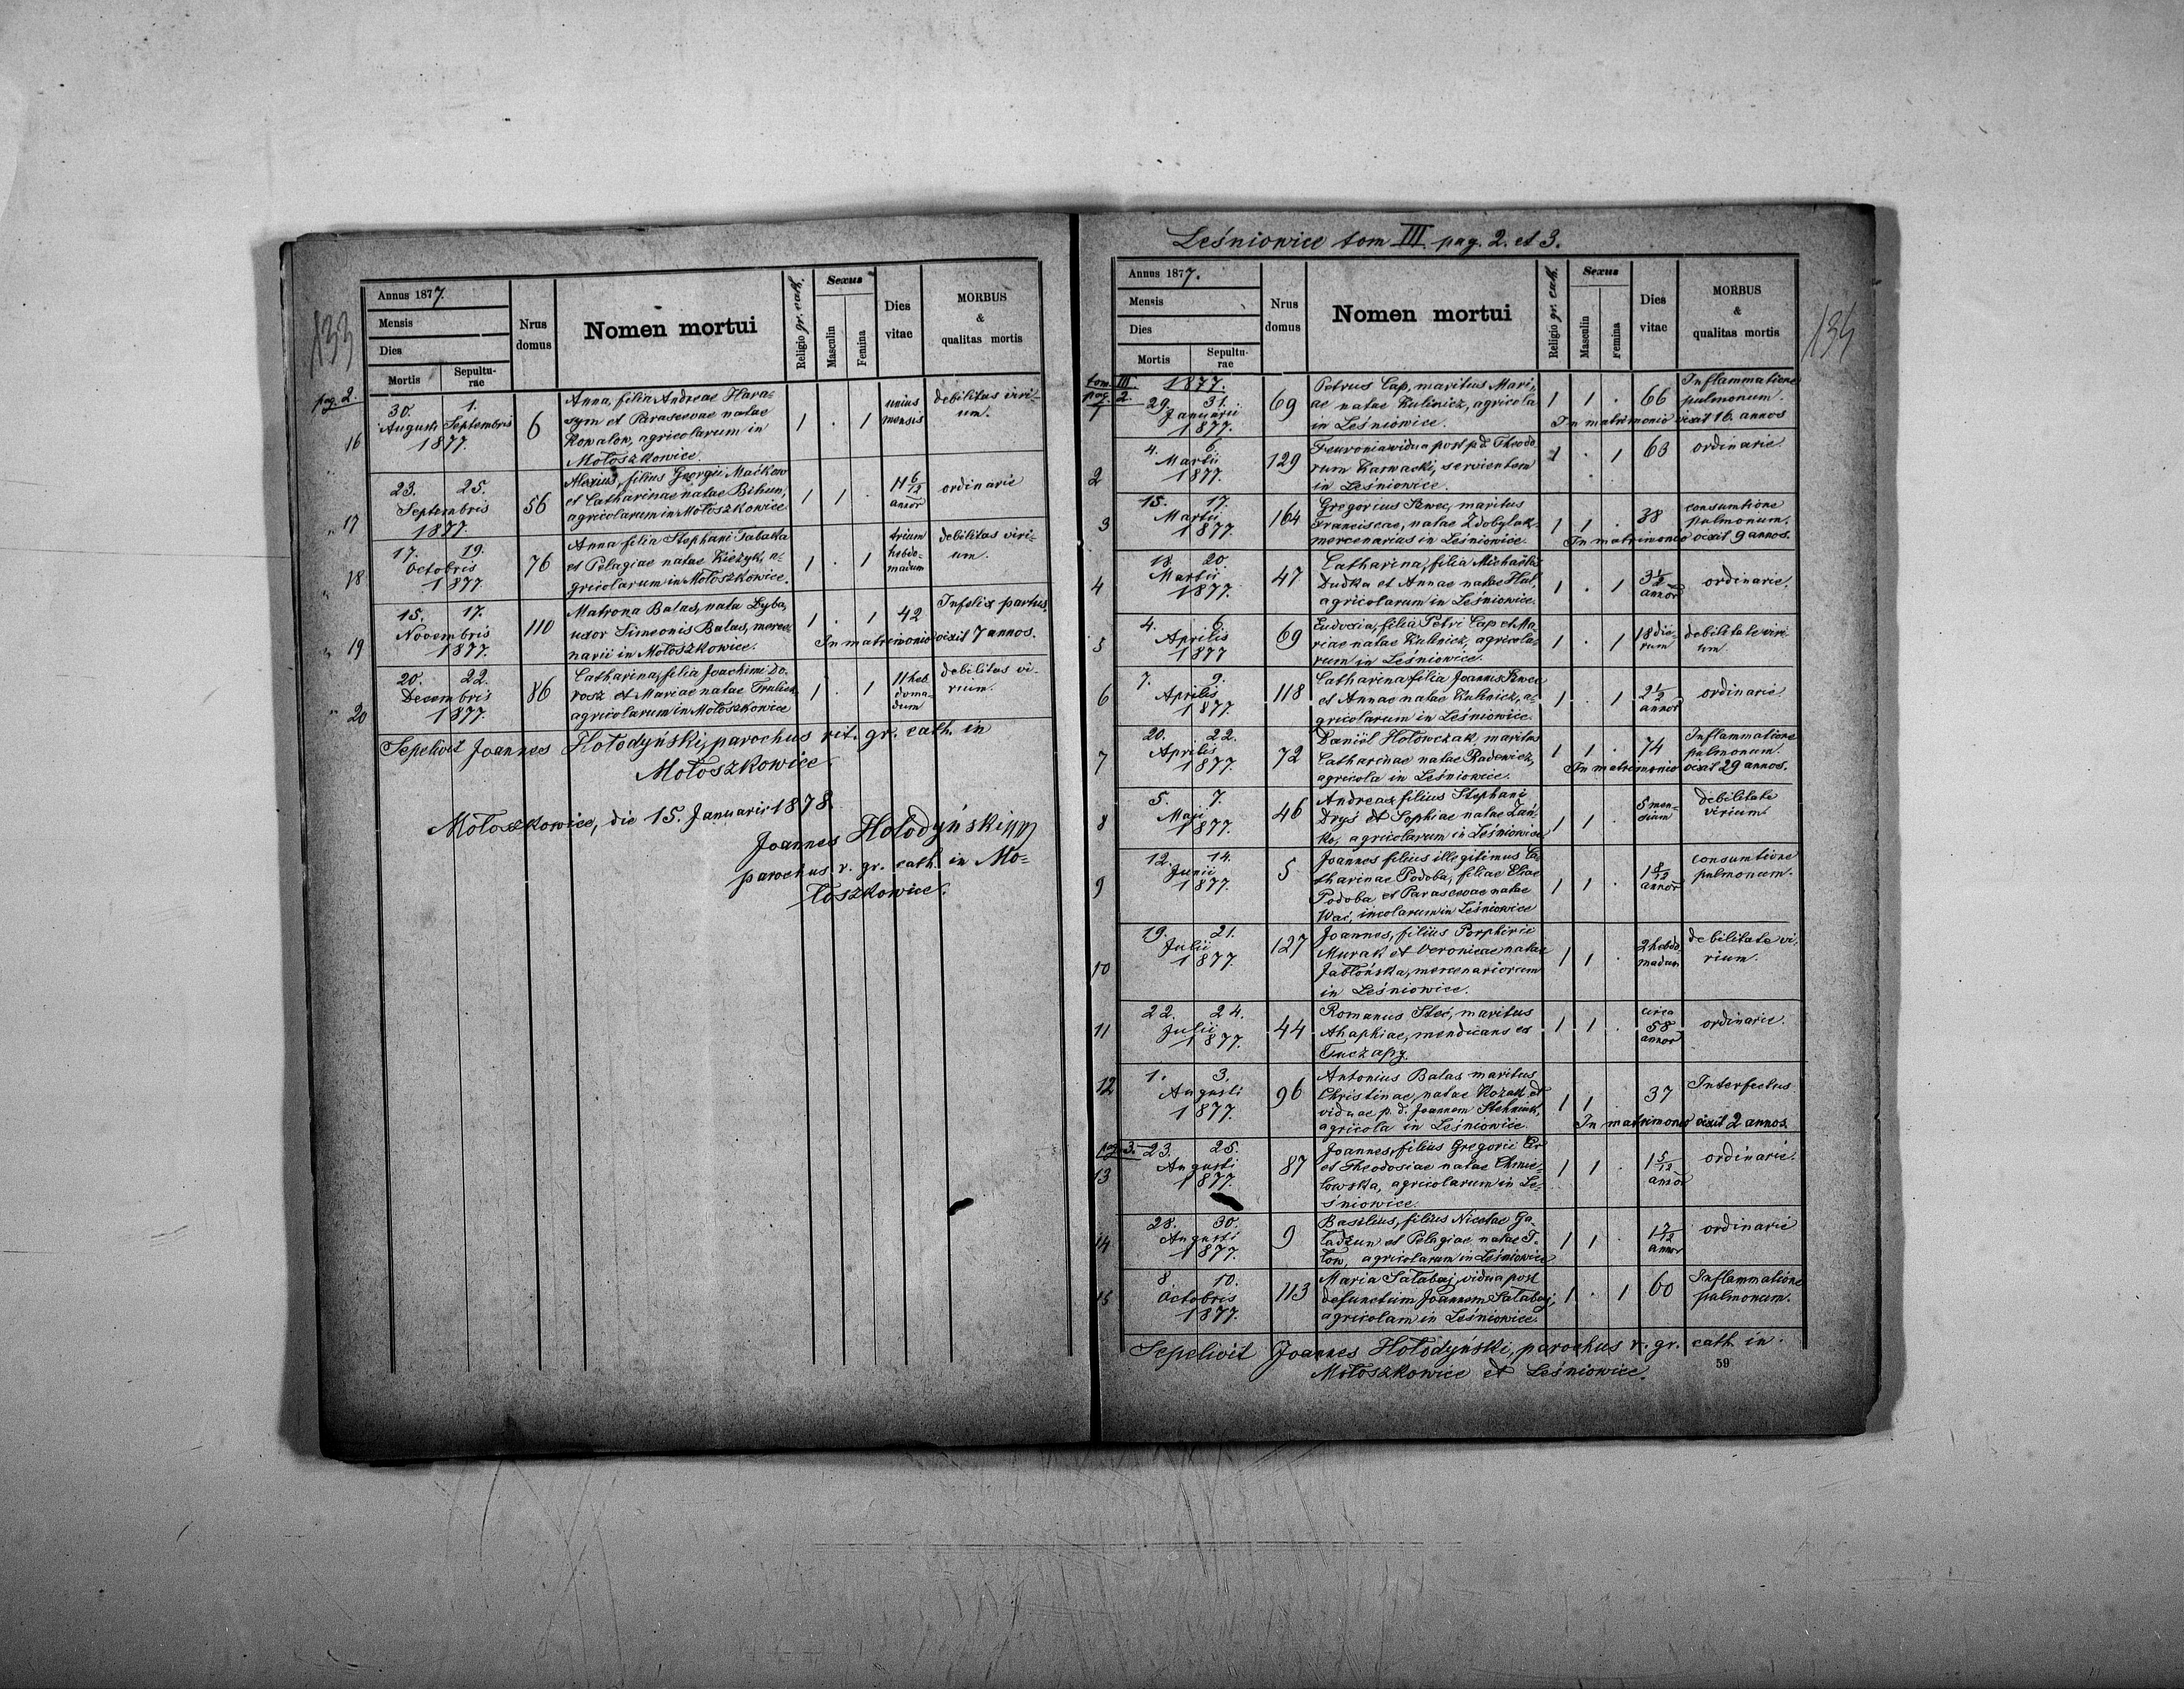 133
Annus 1877.
Mensis
Dies
Mortis
Sepultu-
rae
Nrus
domus
Nomen mortui
Religio gr. cath.
Sexus
Masculin
Femina
Dies
vitae
MORBUS
&
qualitas mortis
pag. 2.
16
30. 1.
Augusti Septembris
1877.
6
Anna, filia Andreae Hara-
sym et Parascevae natae
Kowalow, agricolarum in
Mołoszkowice.
1 . 1
unius
mensis
debilitas viri-
um.
" 17
23. 25.
Septembris
1877.
56
Alexius, filius Georgii Maćkow
et Catharinae natae Bihun,
agricolarum in Mołoszkowice
1 1 .
11 6/12
annor
ordinarie
" 18
17. 19.
Octobris
1877.
76
Anna filia Stephani Tabaka
et Pelagiae natae Kieżyk, a-
gricolarum in Mołoszkowice.
1 . 1
trium
hebdo-
madum
debilitas viri-
um.
" 19
15. 17.
Novembris
1877.
110
Matrona Balas, nata Dyba,
uxor Simeonis Balas, merce-
narii in Mołoszkowice.
1 . 1
42
Infelix partus.
In matrimonio vixit 7 annos.
" 20
20. 22.
Decembris
1877.
86
Catharina, filia Joachimi Do-
rosz et Mariae natae Tralicz,
agricolarum in Mołoszkowice
1 . 1
11 heb
doma-
dum
debilitas vi-
rium.
Sepelivit Joannes Hołodyński, parochus rit. gr. cath. in
Mołoszkowice
Mołoszkowice, die 15. Januarii 1878.
Joannes Hołodyński mp
parochus r. gr. cath. in Mo-
łoszkowice.
Leśniowice tom III. pag. 2. et 3.
134
Annus 1877.
Mensis
Dies
Mortis
Sepultu-
rae
Nrus
domus
Nomen mortui
Religio gr. cath.
Sexus
Masculin
Femina
Dies
vitae
MORBUS
&
qualitas mortis
tom. III.
pag. 2.
1
1877.
29. 31.
Januarii
1877.
69
Petrus Cap, maritus Mari-
ae natae Kulinicz, agricola
in Leśniowice.
1 1 .
66
Inflammatione
pulmonum.
In matrimonio vixit 16. annos
2
4. 6.
Martii
1877.
129
Feuronia vidua post p.d. Theodo
rum Karwacki, servientem
in Leśniowice.
1 . 1
63
ordinarie.
3
15. 17.
Martii
1877.
164
Gregorius Szwec, maritus
Franciscae, natae Zdobylak,
mercenarius in Leśniowice.
1 1 .
38
consumtione
pulmonum.
In matrimonio vixit 9 annos.
4
18. 20.
Martii
1877.
47
Catharina, filia Michaëlis
Dudka et Annae natae Hul,
agricolarum in Leśniowice.
1 . 1
3 1/2
annor
ordinarie.
5
4. 6.
Aprilis
1877
69
Eudoxia, filia Petri Cap et Ma
riae natae Kulinicz, agricola-
rum in Leśniowice.
1 . 1
18 die-
rum
debilitate viri
um.
6
7. 9.
Aprilis
1877.
118
Catharina filia Joannis Szwec
et Annae natae Kulinicz, a-
gricolarum in Leśniowice.
1 . 1
2 1/2
annor
ordinarie
7
20. 22.
Aprilis
1877.
72
Daniël Hołowczak, maritus
Catharinae natae Radewicz,
agricola in Leśniowice.
1 1 .
74
Inflammatione
pulmonum.
In matrimonio vixit 29 annos.
8
5. 7.
Maji
1877.
46
Andreas filius Stephani
Dryś et Sophiae natae Zań-
ko, agricolarum in Leśniowice
1 1 .
5 men-
sium
debilitate
virium
9
12. 14.
Junii
1877.
5
Joannes filius illegitimus Ca
tharinae Podoba, filiae Eliae
Podoba et Parascevae natae
Wać, incolarum in Leśniowice
1 1 .
1 8/12
annor
consumtione
pulmonum.
10
19. 21.
Julii
1877.
127
Joannes, filius Porphirii
Murak et Veronicae natae
Jabłońska, mercenariorum
in Leśniowice.
1 1 .
2 hebdo
madum
debilitate vi,
rium.
11
22. 24.
Julii
1877.
44
Romanus Stec, maritus
Ahaphiae, mendicans ex
Tuczapy.
1 1 .
circa
58
annor
ordinarie.
12
1. 3.
Augusti
1877.
96
Antonius Balas maritus
Christinae, natae Kozak et
viduae p. d. Joannem Stehniak,
agricola in Leśniowice.
1 1 .
37
Interfectus
In matrimonio vixit 2 annos.
pag. 3.
13
23. 25.
Augusti
1877.
87
Joannes, filius Gregorii
et Theodosiae natae Chmie-
lowska, agricolarum in Le-
śniowice.
1 1 .
1 5/12
annor
ordinarie.
14
28. 30.
Augusti
1877.
9
Basilius, filius Nicetae Ga-
ładzun et Pelagiae natae
agricolarum in Leśniowice
1 1 .
1 7/12
annor
ordinarie
15
8. 10.
Octobris
1877.
113
Maria Sałabaj, vidua post
defunctum Joannem Sałabaj,
agricolam in Leśniowice.
1 . 1
60
Inflammatione
pulmonum.
Sepelivit Joannes Hołodyński, parochus r. gr. cath. in
Mołoszkowice et Leśniowice.
59